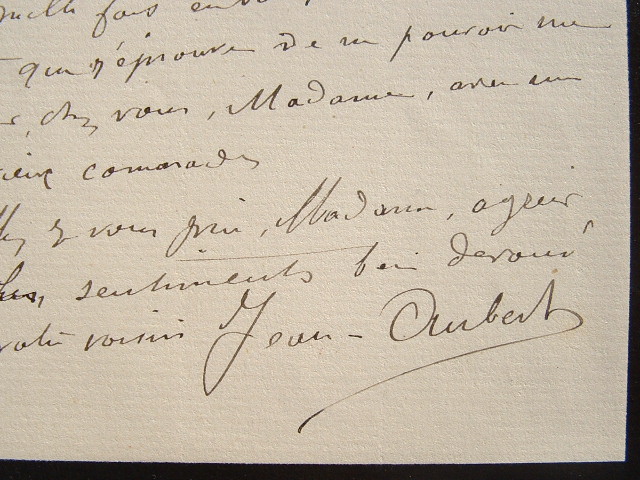 fois
que j'éprouve de ne pouvoir me
chez vous, Madame, avec un
vieux camarade
je vous prie, Madame, agréer
sentiments bien dévoué
votre voisin Jean-Aubert